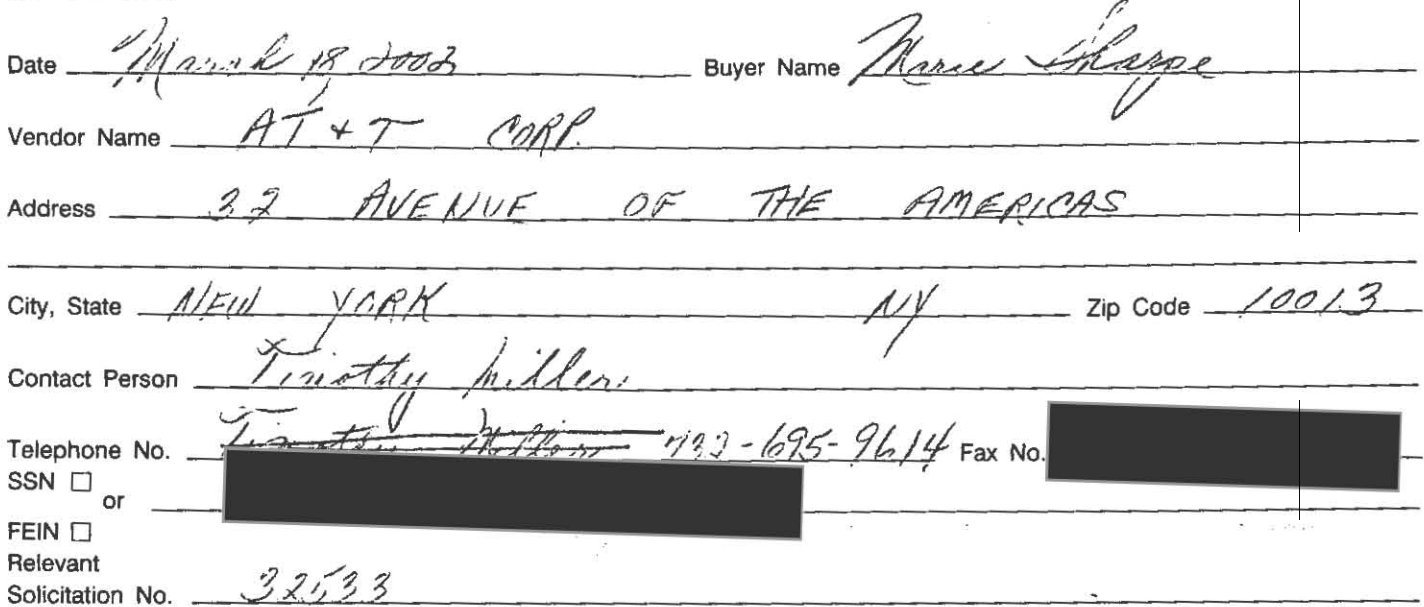 Date March 18, 2002 Buyer Name Marie Sharpe
Vendor Name AT+T CORP.
Address 32 AVENUE OF THE AMERICAS
City, State NEW YORK NY Zip Code 10013
Contact Person Timothy Miller
Telephone No. Timothy Miller 732-695-9614 Fax No.
SSN ☐
or
FEIN ☐
Relevant
Solicitation No. 32533